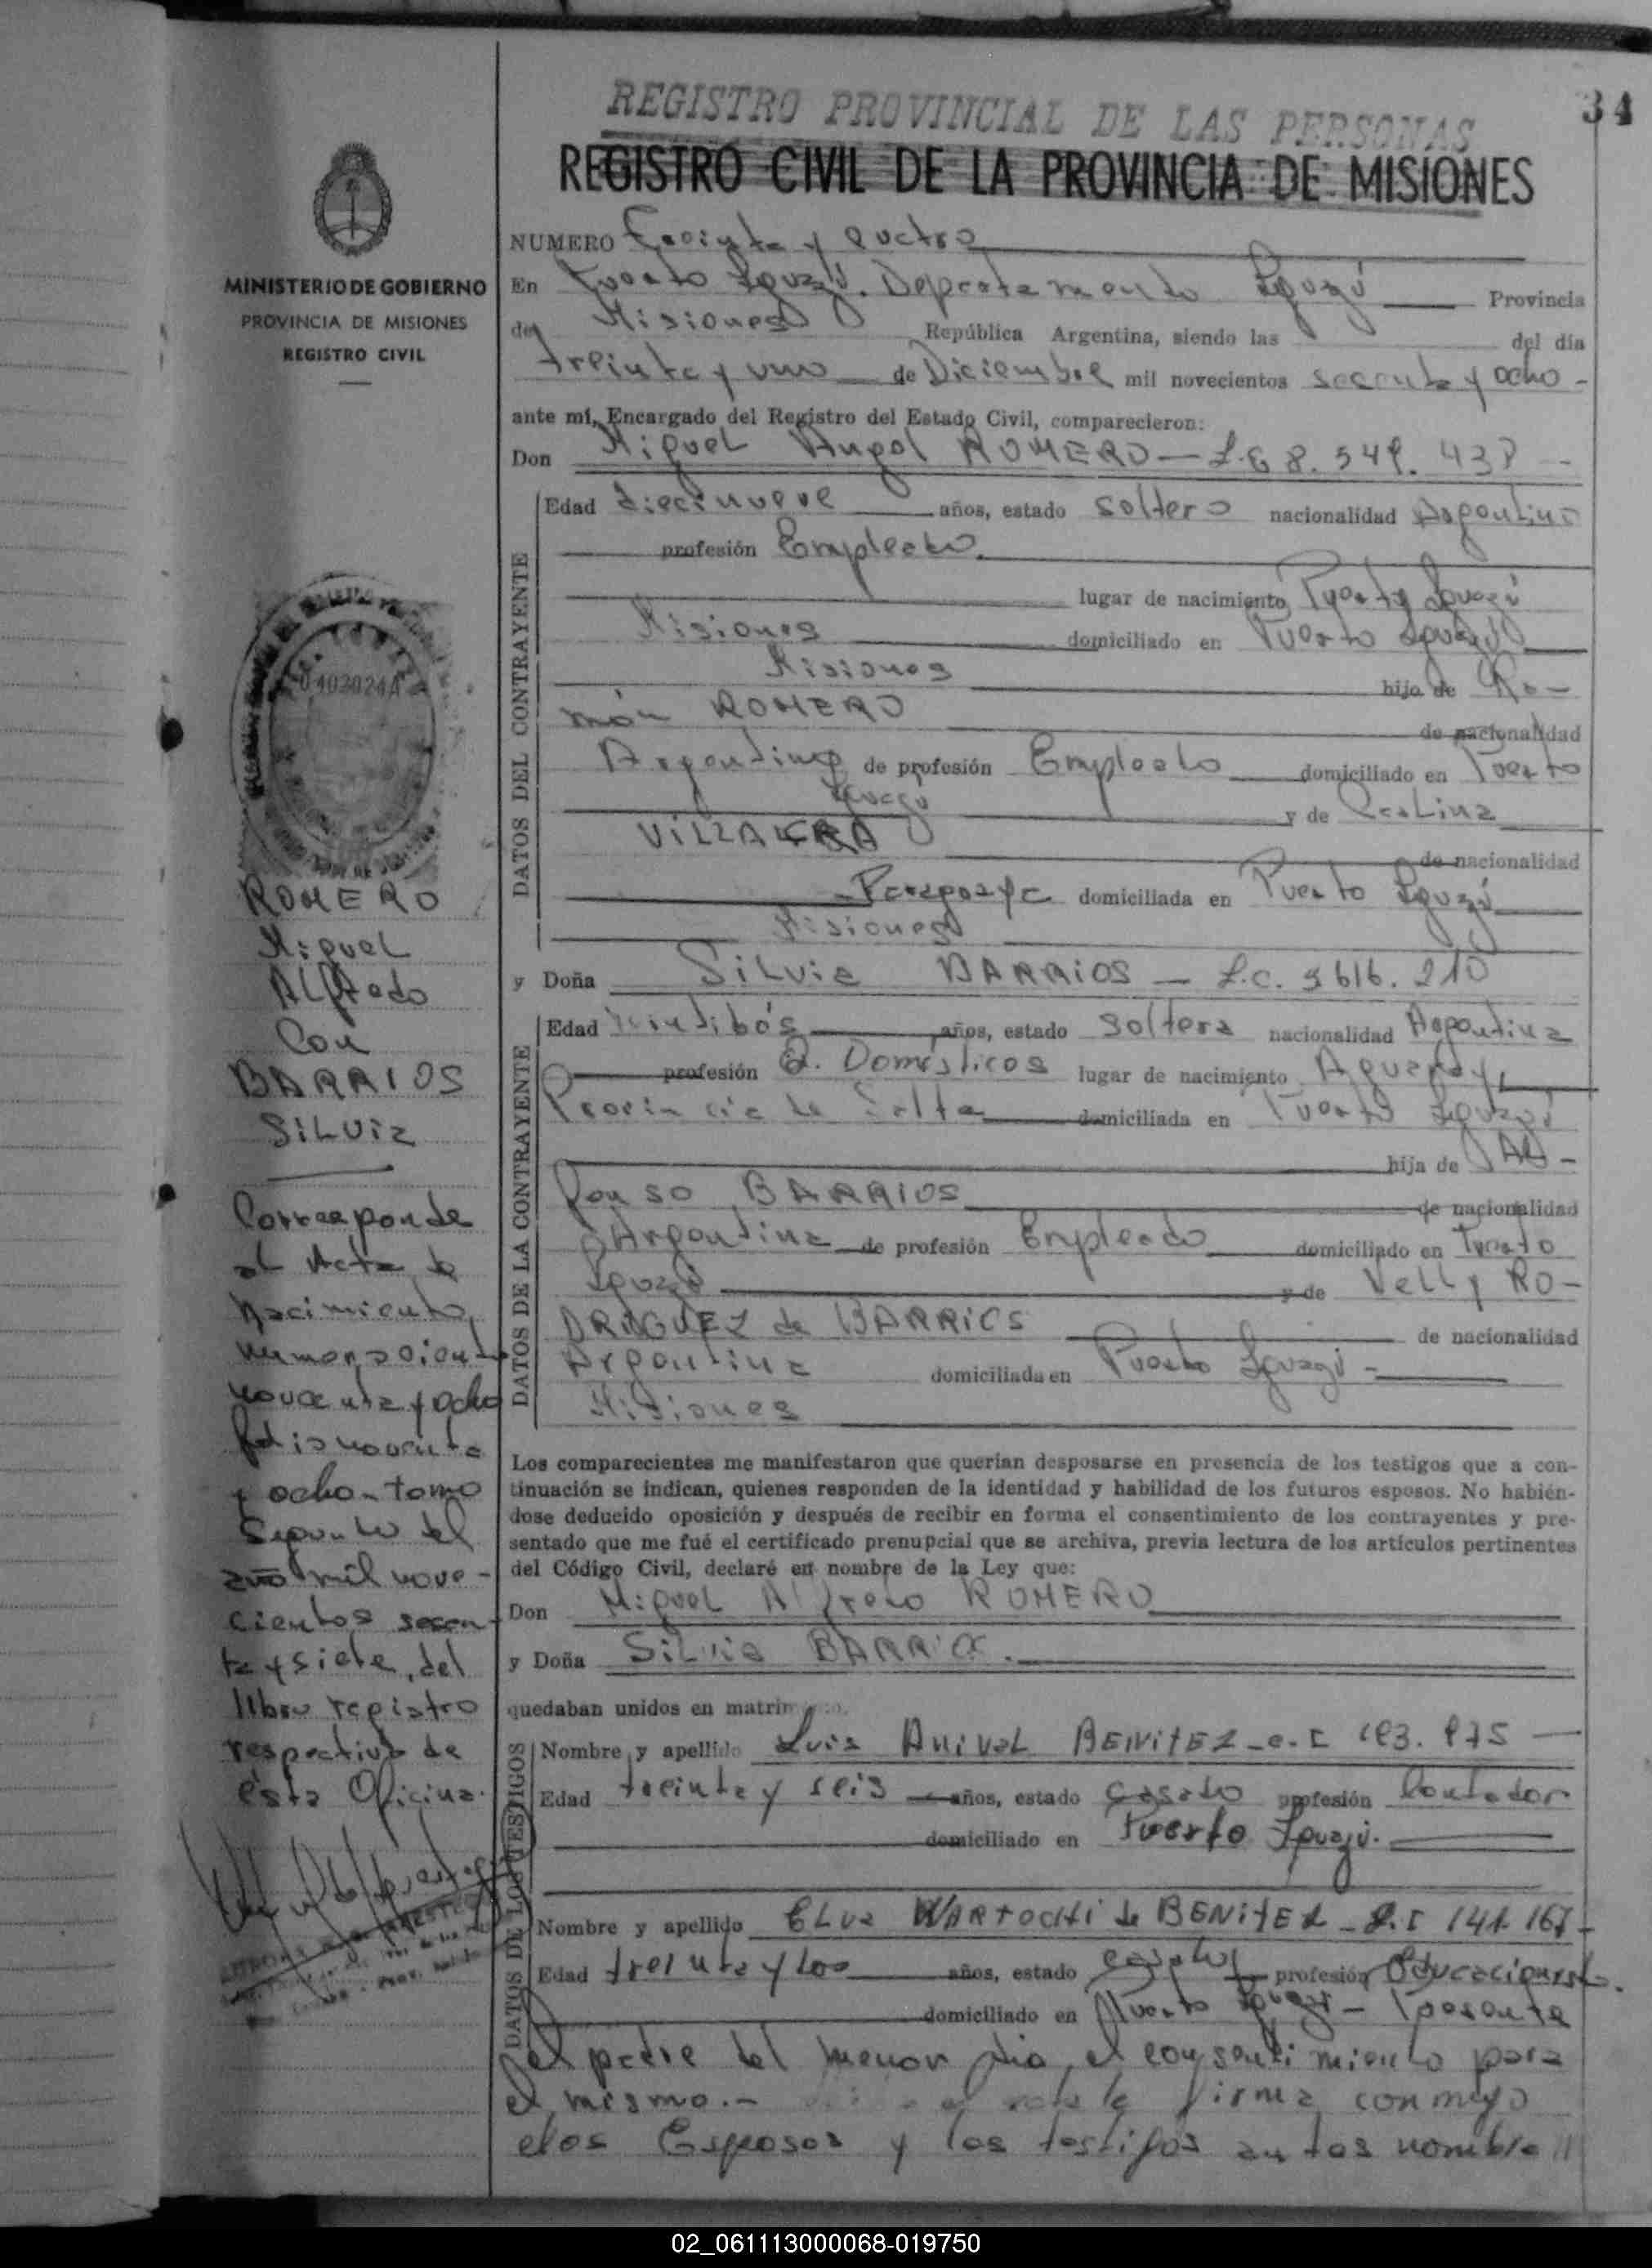 34
REGISTRO PROVINCIAL DE LAS PERSONAS
REGISTRO CIVIL DE LA PROVINCIA DE MISIONES
MINISTERIO DE GOBIERNO
PROVINCIA DE MISIONES
REGISTRO CIVIL
0403024A
ROMERO
Miguel
Alfredo
Con
BARRIOS
SILVIA
Corresponde
al Acta de
Nacimiento
numero cient
noventa y ocho
folio noventa
y ocho - tomo
Segundo del
año mil nove-
cientos sesen-
ta y siete, del
libro registro
respectivo de
ésta Oficina.
NUMERO Treinta y cuatro
En Puerto Iguazú. Departamento Iguazú Provincia
de Misiones República Argentina, siendo las del día
treinta y uno de Diciembre mil novecientos sesenta y ocho -
ante mí, Encargado del Registro del Estado Civil, comparecieron:
Don Miguel Angel ROMERO - L.E 8. 549. 438 -
DATOS DEL CONTRAYENTE
Edad diecinueve años, estado soltero nacionalidad Argentino
profesión Empleado.
lugar de nacimiento Puerto Iguazú
Misiones domiciliado en Puerto Iguazú
Misiones hijo de Ra-
món ROMERO de nacionalidad
Argentino de profesión Empleado domiciliado en Puerto
Iguazú y de Catalina
de nacionalidad
Paraguaya domiciliada en Puerto Iguazú
Misiones
y Doña Silvia BARRIOS - L.C. 5616. 210
DATOS DE LA CONTRAYENTE
Edad Veintidós años, estado soltera nacionalidad Argentina
profesión Q. Domésticos lugar de nacimiento Aguaray
Provincia de Salta domiciliada en Puerto Iguazú
hija de Al-
fonso BARRIOS de nacionalidad
Argentina de profesión Empleado domiciliado en Puerto
Iguazú y de Nelly RO-
DRIGUEZ de BARRIOS de nacionalidad
Argentina domiciliada en Puerto Iguazú -
Misiones
Los comparecientes me manifestaron que querían desposarse en presencia de los testigos que a con-
tinuación se indican, quienes responden de la identidad y habilidad de los futuros esposos. No habién-
dose deducido oposición y después de recibir en forma el consentimiento de los contrayentes y pre-
sentado que me fué el certificado prenupcial que se archiva, previa lectura de los artículos pertinentes
del Código Civil, declaré en nombre de la Ley que:
Don Miguel Alfredo ROMERO
y Doña Silvia BARRIOS.
quedaban unidos en matrimonio.
DATOS DE LOS TESTIGOS
Nombre y apellido Luis Anival BENITEZ - C. I 193. 975 -
Edad treinta y seis años, estado casado profesión Contador
domiciliado en Puerto Iguazú.
Nombre y apellido Elva WARTOCHI de BENITEZ - C. I 141. 167 -
Edad treinta y dos años, estado casada profesión Educacionista.
domiciliado en Puerto Iguazú - Presente
el padre del menor dio el consentimiento para
el mismo. - firma conmigo
elos Esposos y los testigos antes nombra
02_061113000068-019750